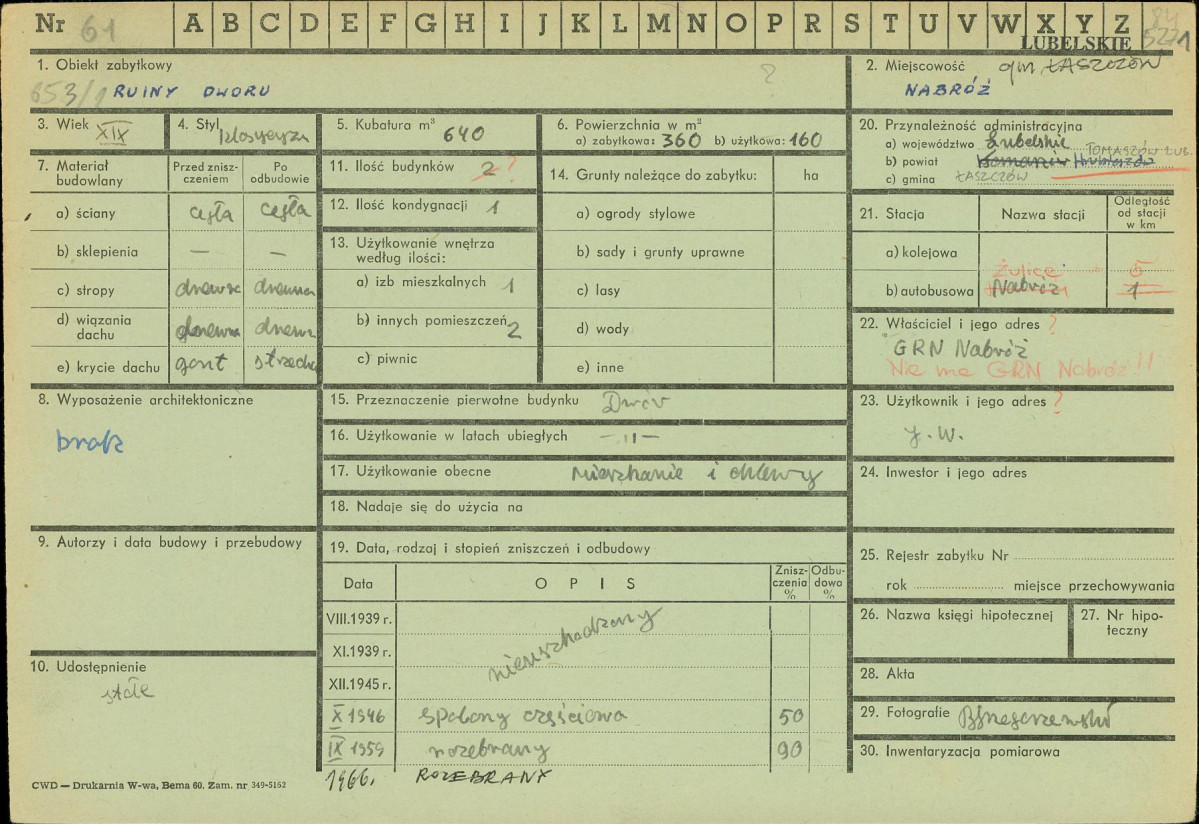 Nr 61 A B C D E F G H I J K L M N O P R S T U V W X Y Z
LUBELSKIE
1. Obiekt zabytkowy
653/1 RUINY DWORU
?
2. Miejscowość gm. ŁASZCZÓW
NABRÓŻ
3. Wiek XIX
4. Styl
5. Kubatura m³ 640
6. Powierzchnia w m²
a) zabytkowa: 360 b) użytkowa: 160
7. Materiał budowlany
Przed zniszczeniem
Po odbudowie
a) ściany cegła cegła
b) sklepienia — —
c) stropy
d) wiązania dachu
e) krycie dachu gont strzecha
8. Wyposażenie architektoniczne
brak
9. Autorzy i data budowy i przebudowy
10. Udostępnienie
stałe
11. Ilość budynków 2 ?
12. Ilość kondygnacji 1
13. Użytkowanie wnętrza według ilości:
a) izb mieszkalnych 1
b) innych pomieszczeń 2
c) piwnic
14. Grunty należące do zabytku: ha
a) ogrody stylowe
b) sady i grunty uprawne
c) lasy
d) wody
e) inne
15. Przeznaczenie pierwotne budynku Dwór
16. Użytkowanie w latach ubiegłych — II —
17. Użytkowanie obecne mieszkanie i chlewy
18. Nadaje się do użycia na
19. Data, rodzaj i stopień zniszczeń i odbudowy
Data OPIS Zniszczenia % Odbudowa %
VIII.1939 r.
XI.1939 r. nieuszkodzony
XII.1945 r.
X 1946 spalony częściowo 50
IX 1959 rozebrany 90
1966. ROZEBRANY
20. Przynależność administracyjna
a) województwo Lubelskie
b) powiat Tomaszów Hrubieszów TOMASZÓW LUB.
c) gmina ŁASZCZÓW
21. Stacja Nazwa stacji Odległość od stacji w km
a) kolejowa
Żulice 5
b) autobusowa Nabróż 1
22. Właściciel i jego adres ?
GRN Nabróż
Nie ma GRN Nabróż!!
23. Użytkownik i jego adres ?
j. w.
24. Inwestor i jego adres
25. Rejestr zabytku Nr
rok miejsce przechowywania
26. Nazwa księgi hipotecznej
27. Nr hipoteczny
28. Akta
29. Fotografie
30. Inwentaryzacja pomiarowa
CWD — Drukarnia W-wa, Bema 60. Zam. nr 349-5162